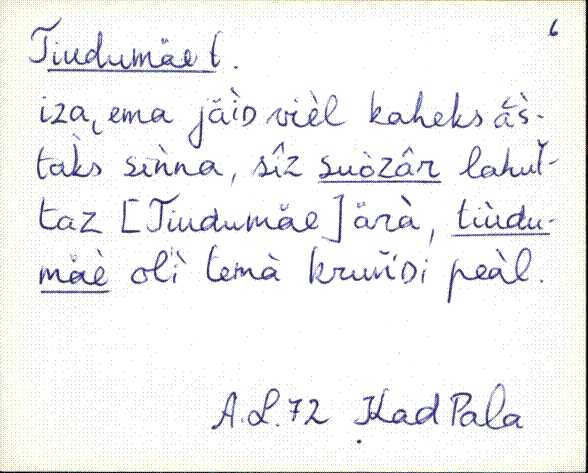 6
Tiudumäe t.
iza, ema jäìᴅ vièl kaheks ä̆s̀-
taks sìǹna, sîz suòzâr lahut̆-
taz [Tiudumäe] ärà, tiùdu-
mäè olì temà kruñᴅi peàl.
A.L.72 Kad Pala